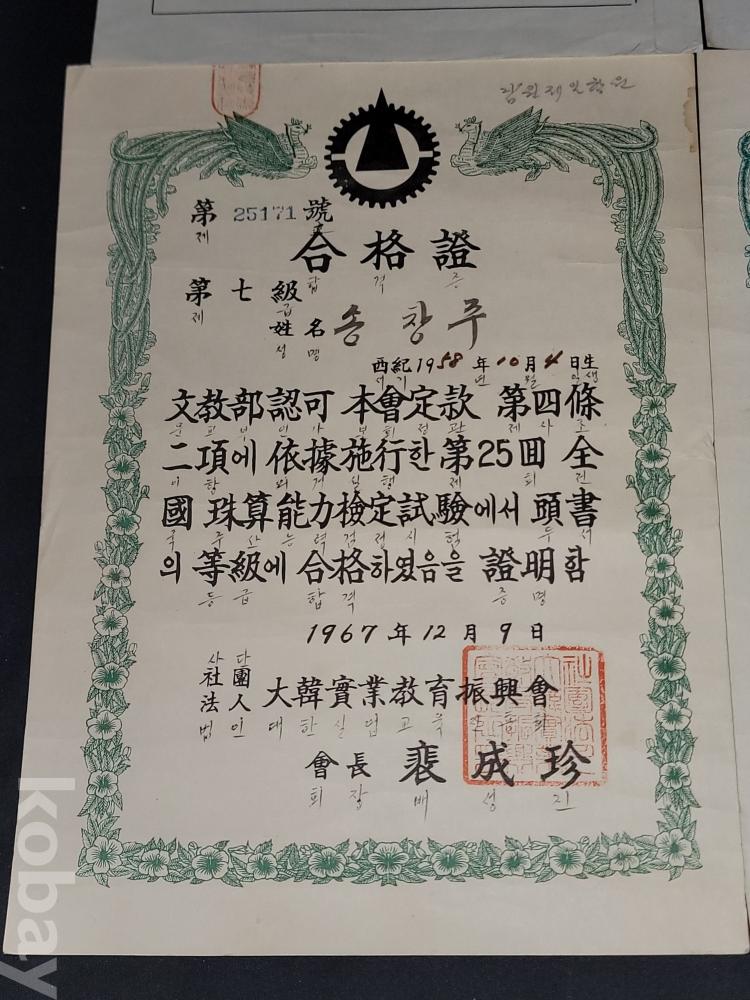 第 25171 號
제
合格證
합 격 증
第七級
제 급
姓名 송창주
성 명
西紀1958年10月4日生
서기 년 월 일생
文敎部認可 本會定款 第四條
문교부인가 본회정관 제사조
二項에 依據施行한 第25回 全
이항 의거시행 제 회 전
國 珠算能力檢定試驗에서 頭書
국 주산능력검정시험 두서
의 等級에 合格하였음을 證明함
등급 합격 증명
1967年12月9日
사단
社團
法人
법인
大韓實業敎育振興會
대한실업교육 흥회
會長 裵成珍
회장 배성진
kobay